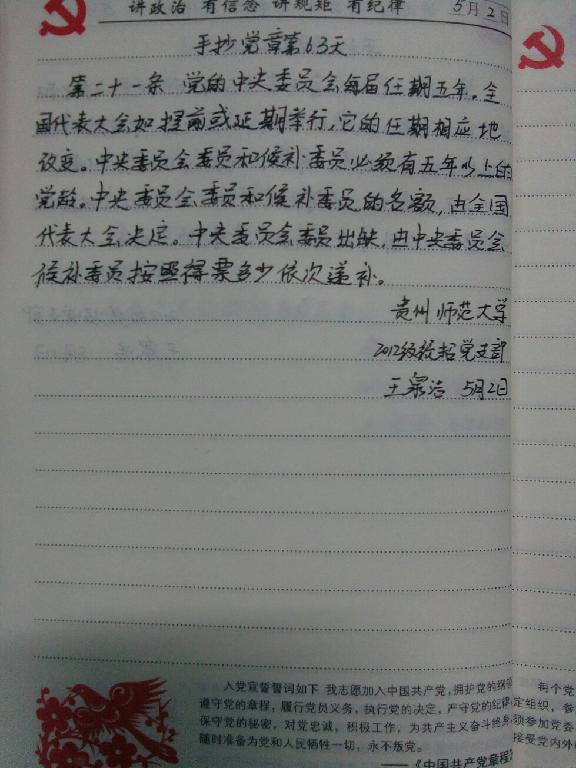 讲政治 有信念 讲规矩 有纪律 5月2日
手抄党章第63天
第二十一条 党的中央委员会每届任期五年。全
国代表大会如提前或延期举行,它的任期相应地
改变。中央委员会委员和候补委员必须有五年以上的
党龄。中央委员会委员和候补委员的名额,由全国
代表大会决定。中央委员会委员出缺,由中央委员会
候补委员按照得票多少依次递补。
贵州师范大学
2012级统招党支部
王泉洁 5月2日
入党宣誓誓词如下 我志愿加入中国共产党,拥护党的纲领
遵守党的章程,履行党员义务,执行党的决定,严守党的纪律
保守党的秘密,对党忠诚,积极工作,为共产主义奋斗终身
随时准备为党和人民牺牲一切,永不叛党。
——《中国共产党章程》
每个党
定组织,参
须参加党委
接受党内外